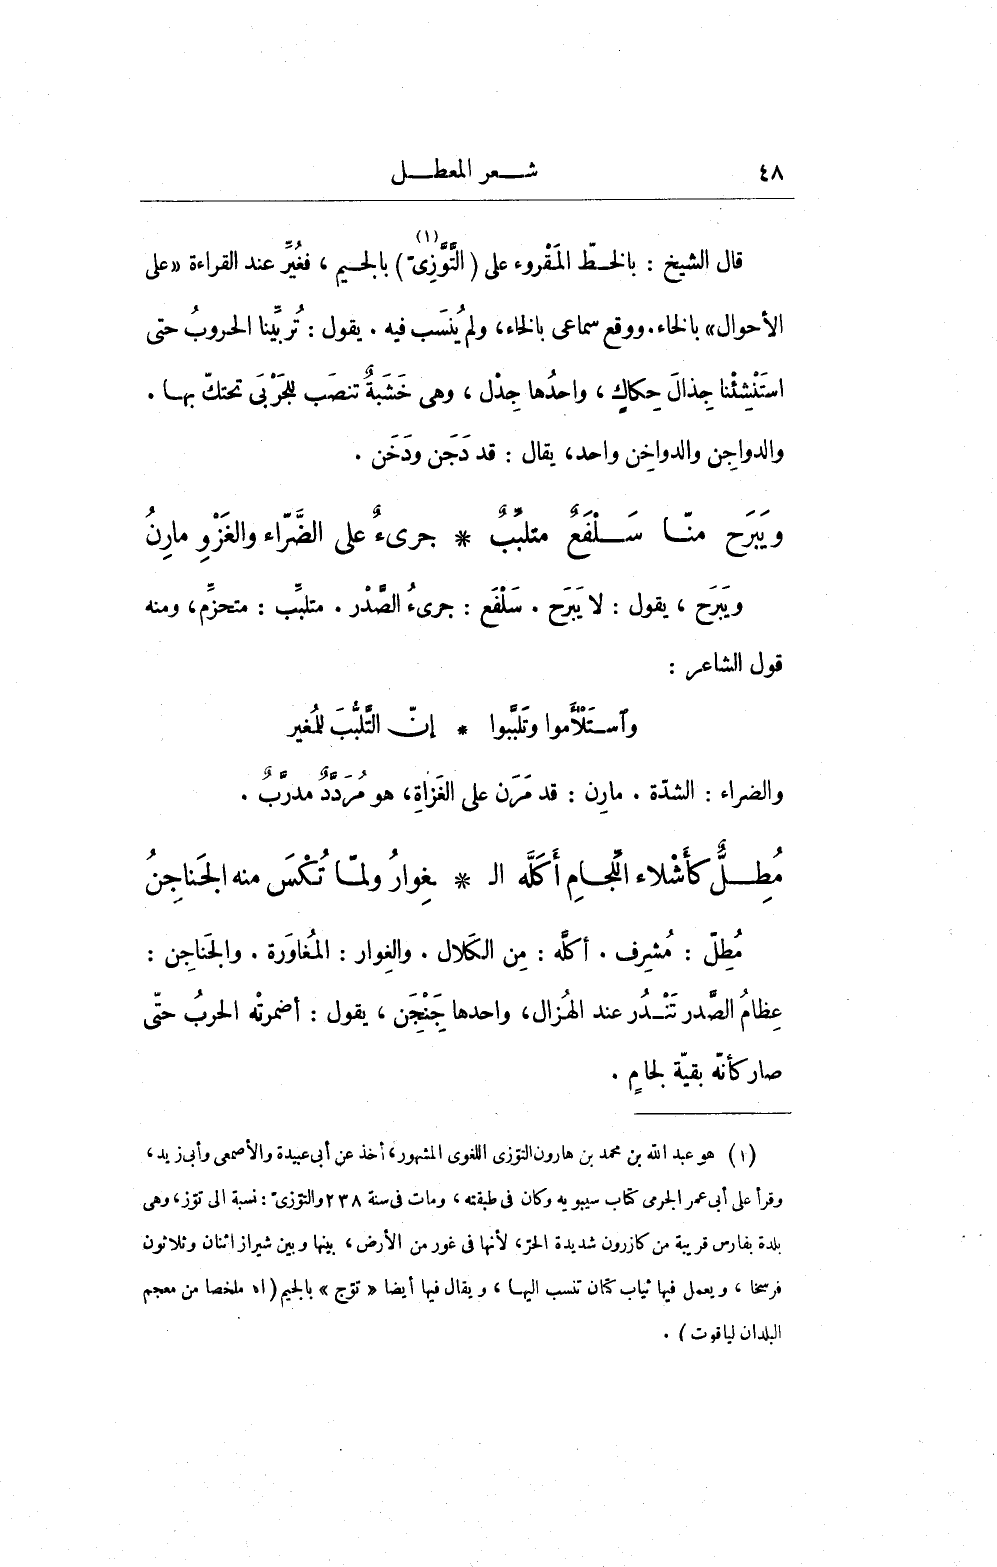 ٤٨ شعر المعطل
قال الشيخ : بالخطّ المَقْروء على ( التَّوَّزِىّ (١) ) بالجيم ، فغُيِّر عند القراءة «على
الأحوال» بالخاء. ووقع سماعى بالخاء، ولم يُنسَب فيه . يقول : تُربِّينا الحروبُ حتى
استَنْشِئْنا جِذالَ حِكاكٍ ، واحدُها جِذْل ، وهى خَشَبةٌ تنصَب للجَرْبَى تحتكّ بها .
والدواجِن والدواخِن واحد، يقال : قد دَجَن ودَخَن .
ويَبَرَح منّا سَلْفَعٌ متلبِّبٌ * جرىءٌ على الضَّرّاء والغَزْوِ مارِنُ
ويَبَرح ، يقول : لا يَبَرح . سَلْفَع : جرىءُ الصَّدْر . متلبِّب : متحزِّم، ومنه
قول الشاعر :
وٱستَلْأَموا وتَلبَّبوا * إنّ التَّلبُّبَ للمُغير
والضراء : الشدّة . مارِن : قد مَرَن على الغَزاةِ، هو مُرَدَّدٌ مدرَّبٌ .
مُطِلٌّ كأَشْلاء اللِّجامِ أَكَلَّه الـ * غِوارُ ولمّا تُكْسَ منه الجَناجِنُ
مُطِلّ : مُشرِف . أكلَّه : مِن الكَلال . والغِوار : المُغاوَرة . والجَناجِن :
عِظامُ الصَّدر تَنْدُر عند الهُزال، واحدها جَِنْجَِن ، يقول : أضمرتْه الحربُ حتّى
صار كأنّه بقيّة لجامٍ .
(١) هو عبد الله بن محمد بن هارون التوّزى اللغوى المشهور، أخذ عن أبى عبيدة والأصمعى وأبى زيد،
وقرأ على أبى عمر الجرمى كتاب سيبويه وكان فى طبقته ، ومات فى سنة ٢٣٨ والتوّزىّ : نسبة الى توّز، وهى
بلدة بفارس قريبة من كازرون شديدة الحرّ، لأنها فى غور من الأرض، بينها وبين شيراز اثنان وثلاثون
فرسخا ، ويعمل فيها ثياب كتان تنسب اليها ، ويقال فيها أيضا « توّج » بالجيم (اه ملخصا من معجم
البلدان لياقوت ) .